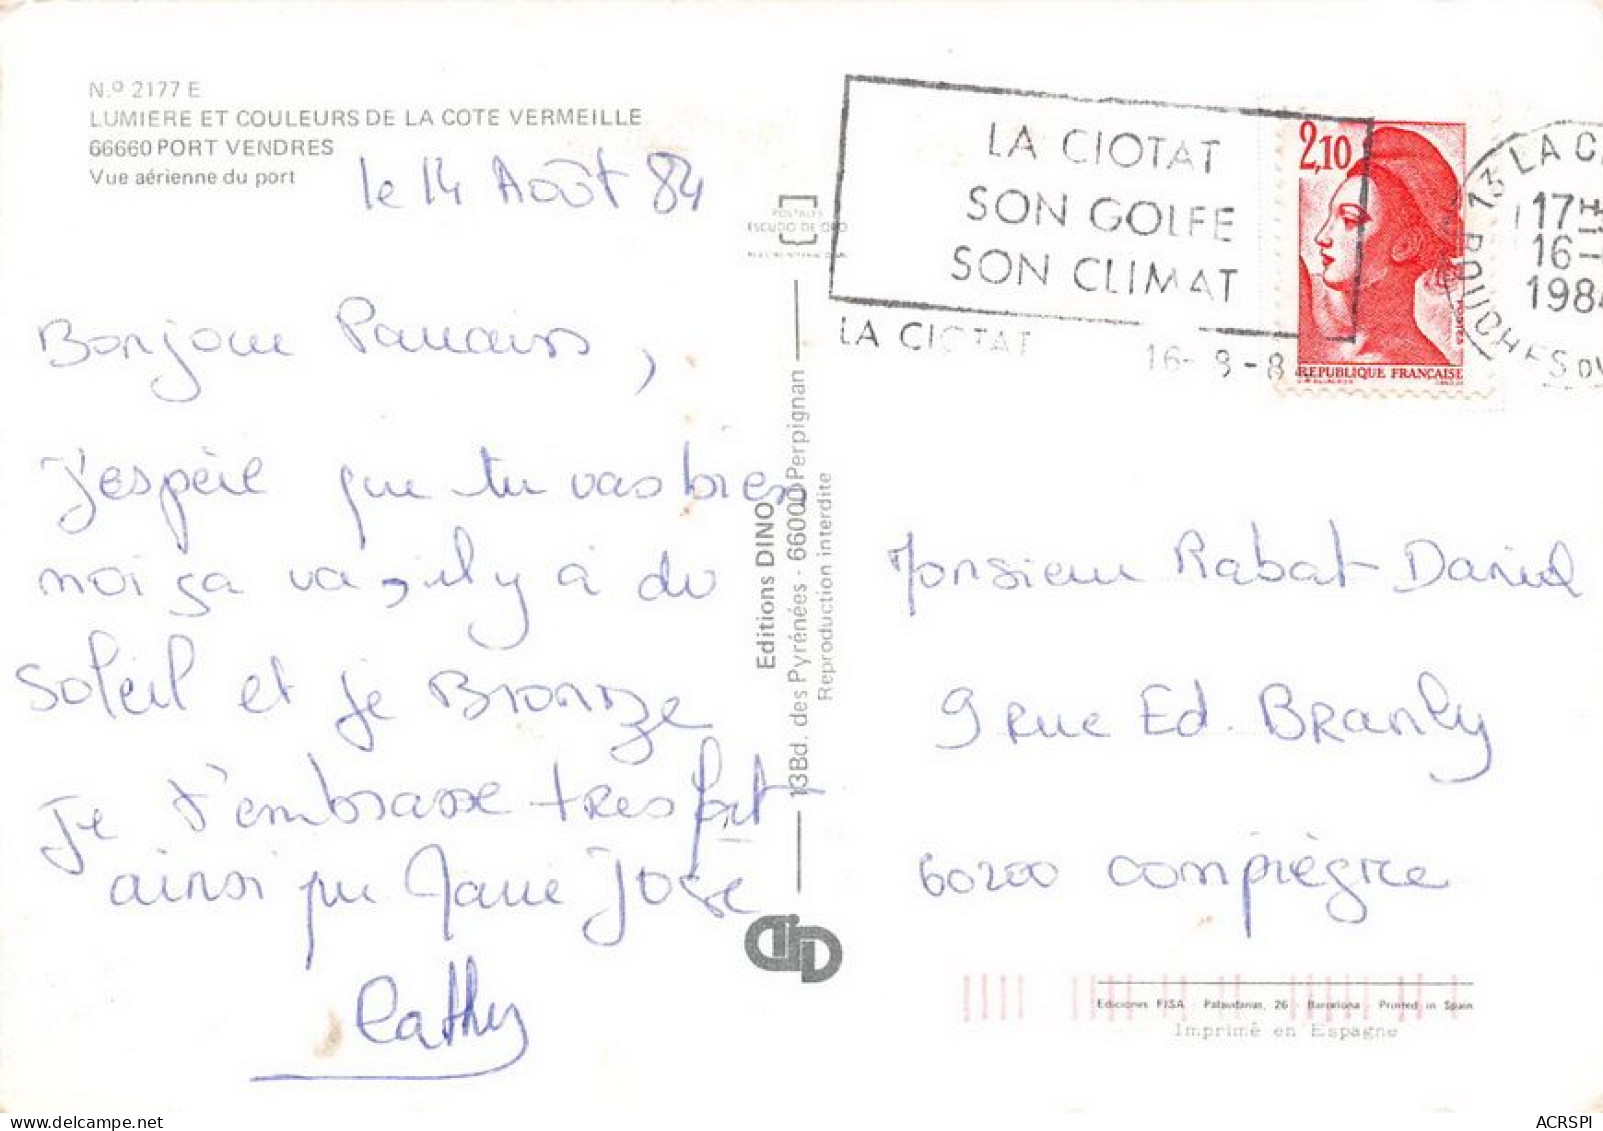 N.º 2177 E
LUMIERE ET COULEURS DE LA COTE VERMEILLE
66660 PORT VENDRES
Vue aérienne du port
le 14 Août 84
Bonjour Parrain,
J'espère que tu vas bien
moi ça va, il y a du
soleil et je Bronze
Je t'embrasse tres fort
ainsi que Marie José
Cathy
POSTALES
ESCUDO DE ORO
Editions DINO
13 Bd. des Pyrénées - 66000 Perpignan
Reproduction interdite
LA CIOTAT
SON GOLFE
SON CLIMAT
LA CIOTAT 16-8-8
2,10
REPUBLIQUE FRANÇAISE
13 LA C
17H
16-
1984
BOUCHES DU
Monsieur Rabat Daniel
9 rue Ed. Branly
60200 compiègne
Ediciones FISA - Palaudarias, 26 - Barcelona - Printed in Spain
Imprimé en Espagne
ACRSPI